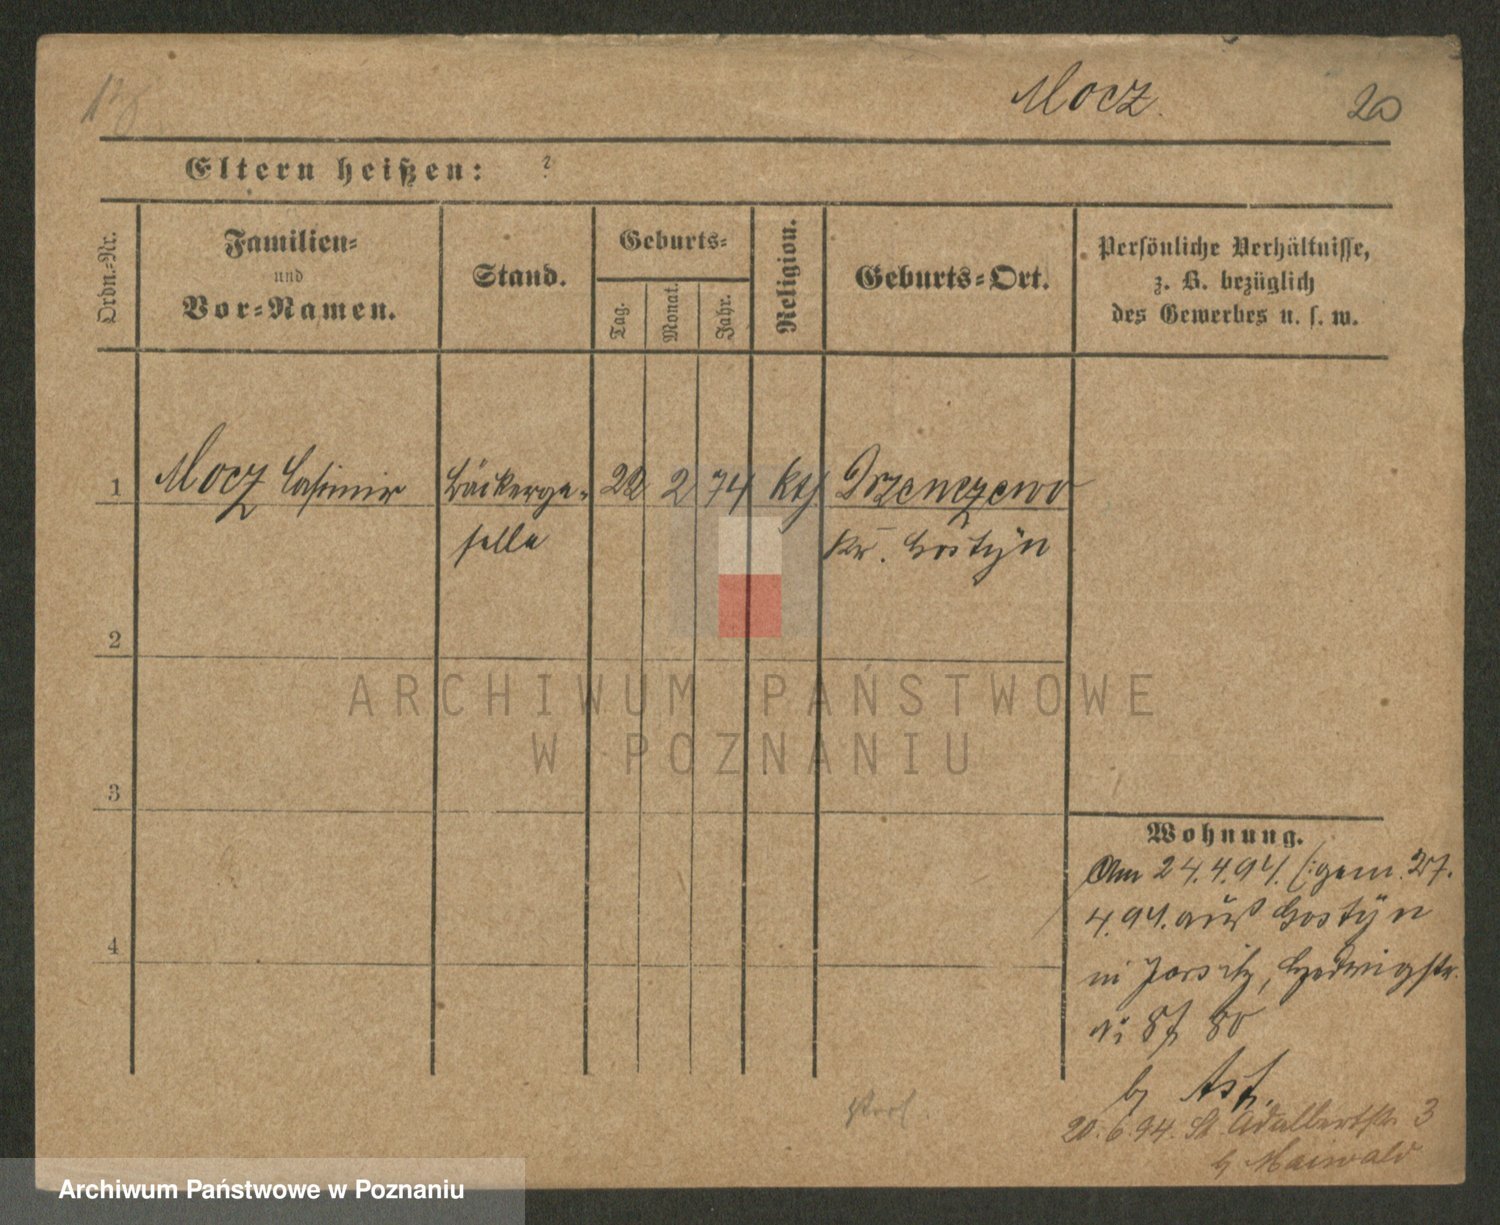 Mocz. 20
Eltern heißen: ?
Ordn.-Nr.
Familien-
und
Vor-Namen.
Stand.
Geburts-
Tag.
Monat.
Jahr.
Religion.
Geburts-Ort.
Persönliche Verhältnisse,
z. B. bezüglich
des Gewerbes u. s. w.
1 Mocz Casimir Bäckerge- 22 2 74 kth Drzenczewo
selle Kr. Gostÿn
2
3
4
Wohnung.
Am 24.4.94. (: gem. 27.
4.94. aus Gostÿn
in Jersitz, Hedwigstr.
80
b
20.6.94. St. Adalbertstr. 3
b Maiwald
ARCHIWUM PAŃSTWOWE
W POZNANIU
Archiwum Państwowe w Poznaniu